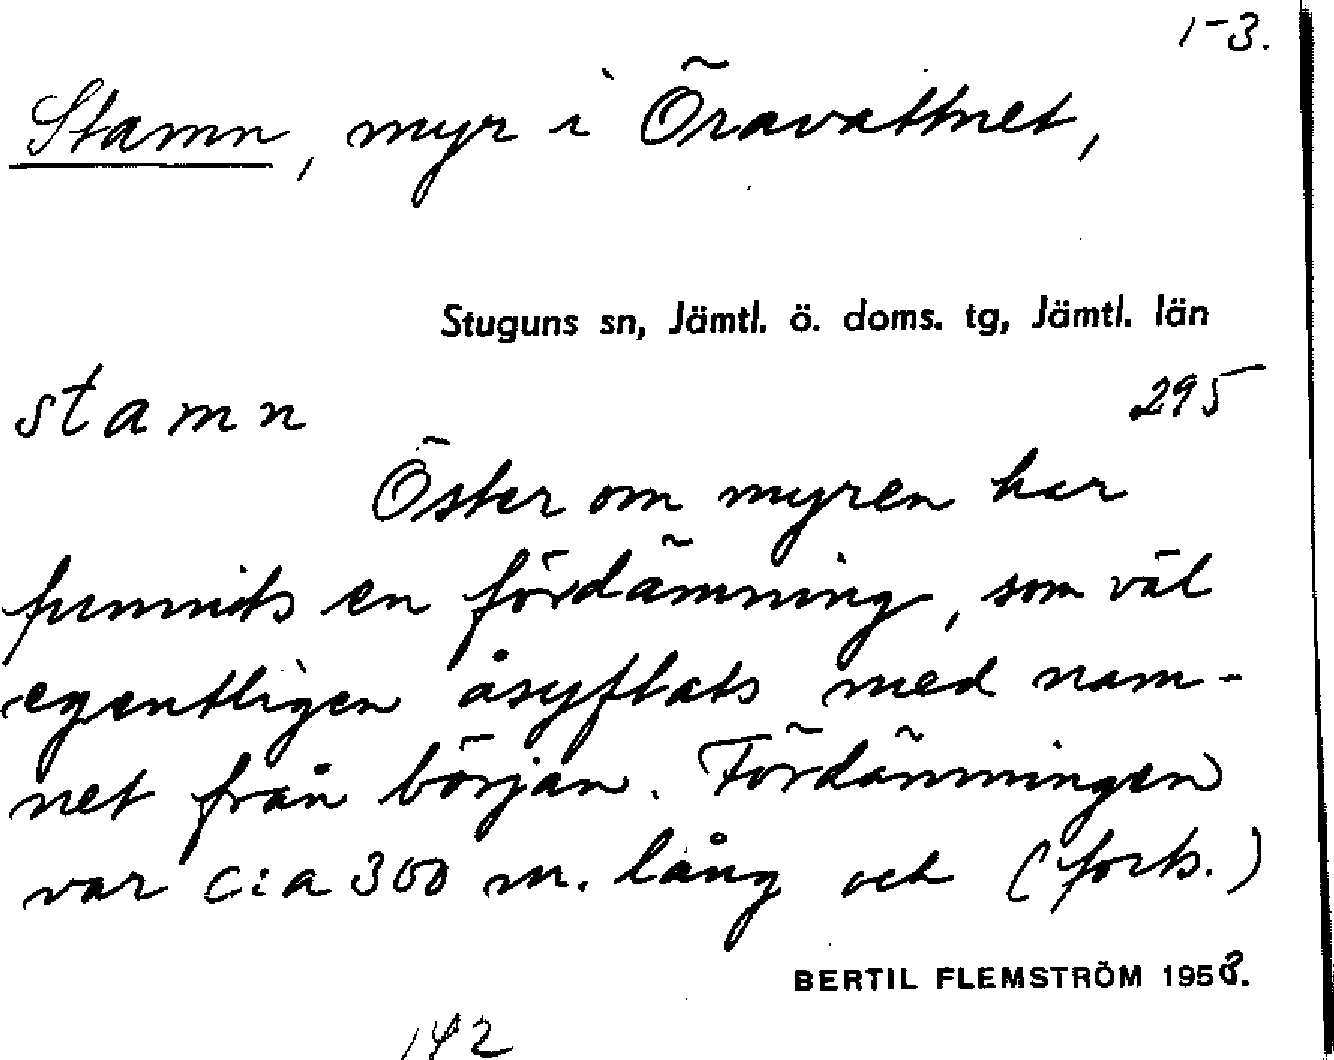 1-3.
Stamn, myr i Öravattnet,
Stuguns sn, Jämtl. ö. doms. tg, Jämtl. län
stamn 295
Öster om myren har
funnits en fördämning, som väl
egentligen åsyftats med nam-
net från början. Fördämningen
var c:a 300 m. lång och (forts.)
BERTIL FLEMSTRÖM 1958.
142